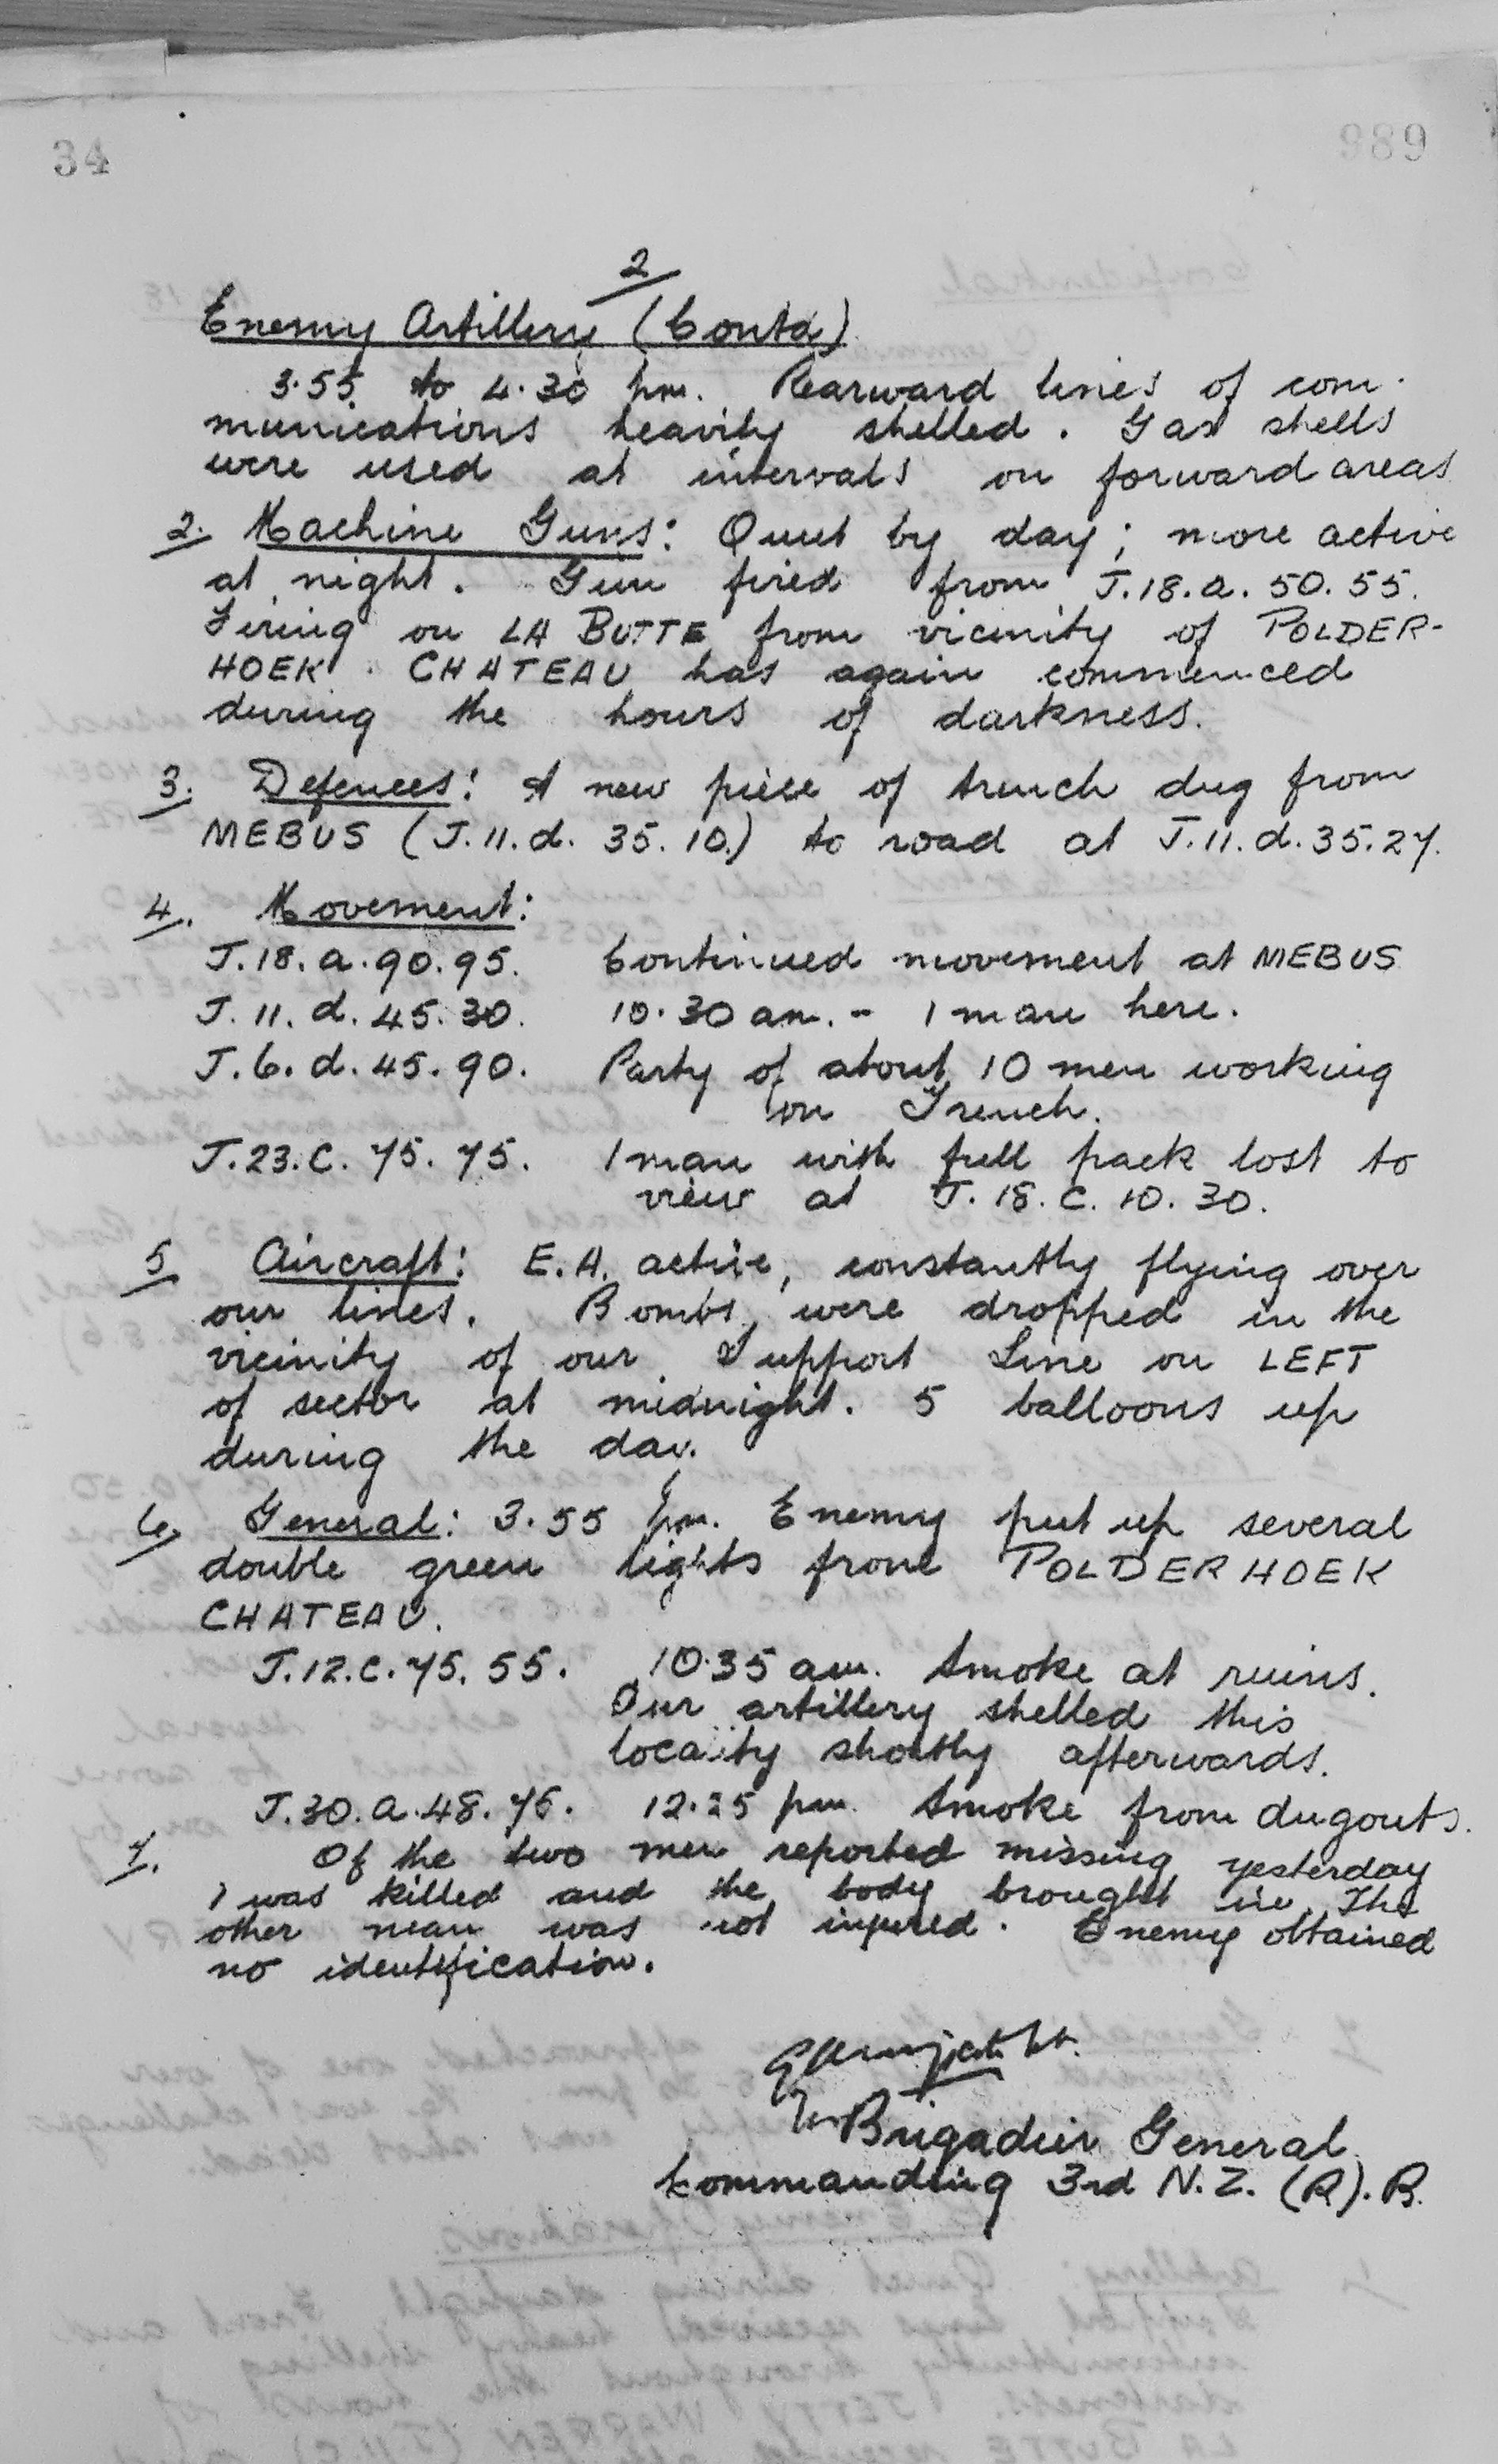 34
989
2
Enemy Artillery (Contd)
3.55 to 4.30 pm. Rearward lines of com-
munications heavily shelled. Gas shells
were used at intervals on forward areas
2. Machine Guns: Quiet by day; more active
at night. Gun fired from J.18.a.50.55.
Firing on LA BUTTE from vicinity of POLDER-
HOEK CHATEAU has again commenced
during the hours of darkness.
3. Defences: A new piece of trench dug from
MEBUS (J.11.d.35.10.) to road at J.11.d.35.27.
4. Movement:
J.18.a.90.95. Continued movement at MEBUS
J.11.d.45.30. 10.30 am. - 1 man here.
J.6.d.45.90. Party of about 10 men working
on Trench.
J.23.C.75.75. 1 man with full pack lost to
view at J.18.C.10.30.
5 Aircraft: E.A. active, constantly flying over
our lines. Bombs were dropped in the
vicinity of our Support Line on LEFT
of sector at midnight. 5 balloons up
during the day.
6. General: 3.55 pm. Enemy put up several
double green lights from POLDERHOEK
CHATEAU.
J.12.C.75.55. 10.35 am. Smoke at ruins.
Our artillery shelled this
locality shortly afterwards.
J.30.a.48.75. 12.25 pm. Smoke from dugouts.
7. Of the two men reported missing yesterday
1 was killed and the body brought in. The
other man was not injured. Enemy obtained
no identification.
Lt.
for Brigadier General
Commanding 3rd N.Z. (R).B.